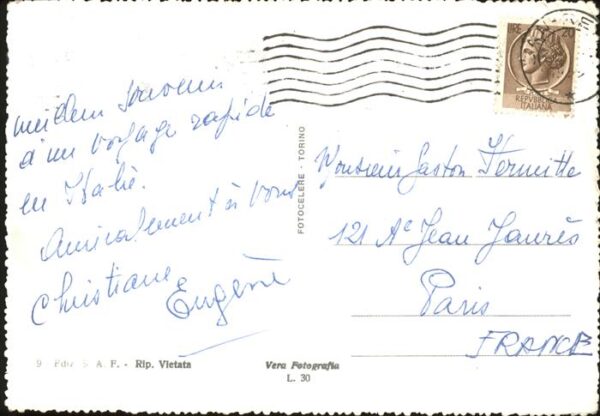 meilleur souvenir
d'un voyage rapide
en Italie.
Amicalement à vous
Christiane
Eugène
Monsieur Gaston
121 Ae Jean Jaurès
Paris
FRANCE
LIRE 20
REPVBBLICA
ITALIANA
FOTOCELERE - TORINO
9 Ediz. S. A. F. - Rip. Vietata
Vera Fotografia
L. 30